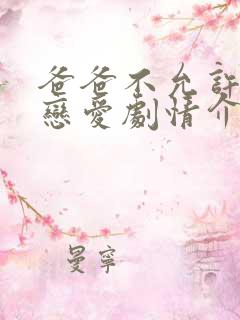 爸爸不允許
戀愛劇情介
曼寧